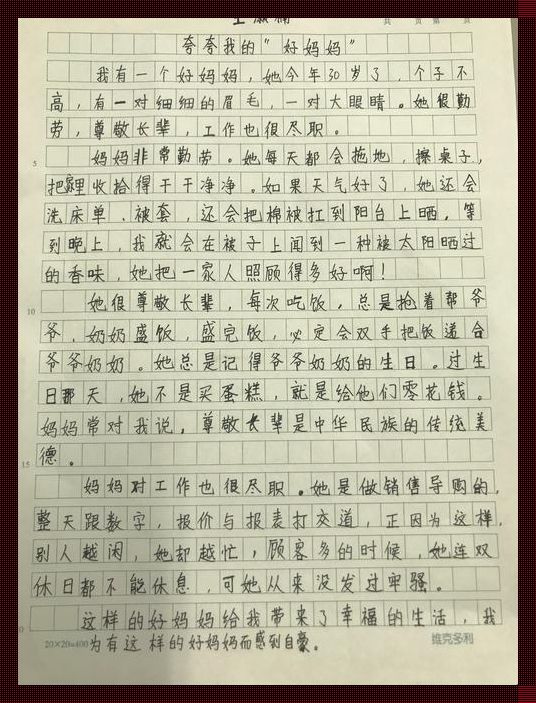 共 页 第 页
夸夸我的“好妈妈”
我有一个好妈妈，她今年30岁了，个子不
高，有一对细细的眉毛，一对大眼睛。她很勤
劳，尊敬长辈，工作也很尽职。
妈妈非常勤劳。她每天都会拖地，擦桌子，
5
把家里收拾得干干净净。如果天气好了，她还会
洗床单、被套，还会把棉被扛到阳台上晒，等
到晚上，我就会在被子上闻到一种被太阳晒过
的香味，她把一家人照顾得多好啊！
她很尊敬长辈，每次吃饭，总是抢着帮爷
10
爷、奶奶盛饭，盛完饭，必定会双手把饭递合
爷爷奶奶。她总是记得爷爷奶奶的生日。过生
日那天，她不是买蛋糕，就是给他们零花钱。
妈妈常对我说，尊敬长辈是中华民族的传统美
15
德。
妈妈对工作也很尽职。她是做销售导购的，
整天跟数字，报价与报表打交道，正因为这样，
别人越闲，她却越忙，顾客多的时候，她连双
休日都不能休息，可她从来没发过牢骚。
这样的好妈妈给我带来了幸福的生活，我
20×20=400 为有这样的好妈妈而感到自豪。 维克多利